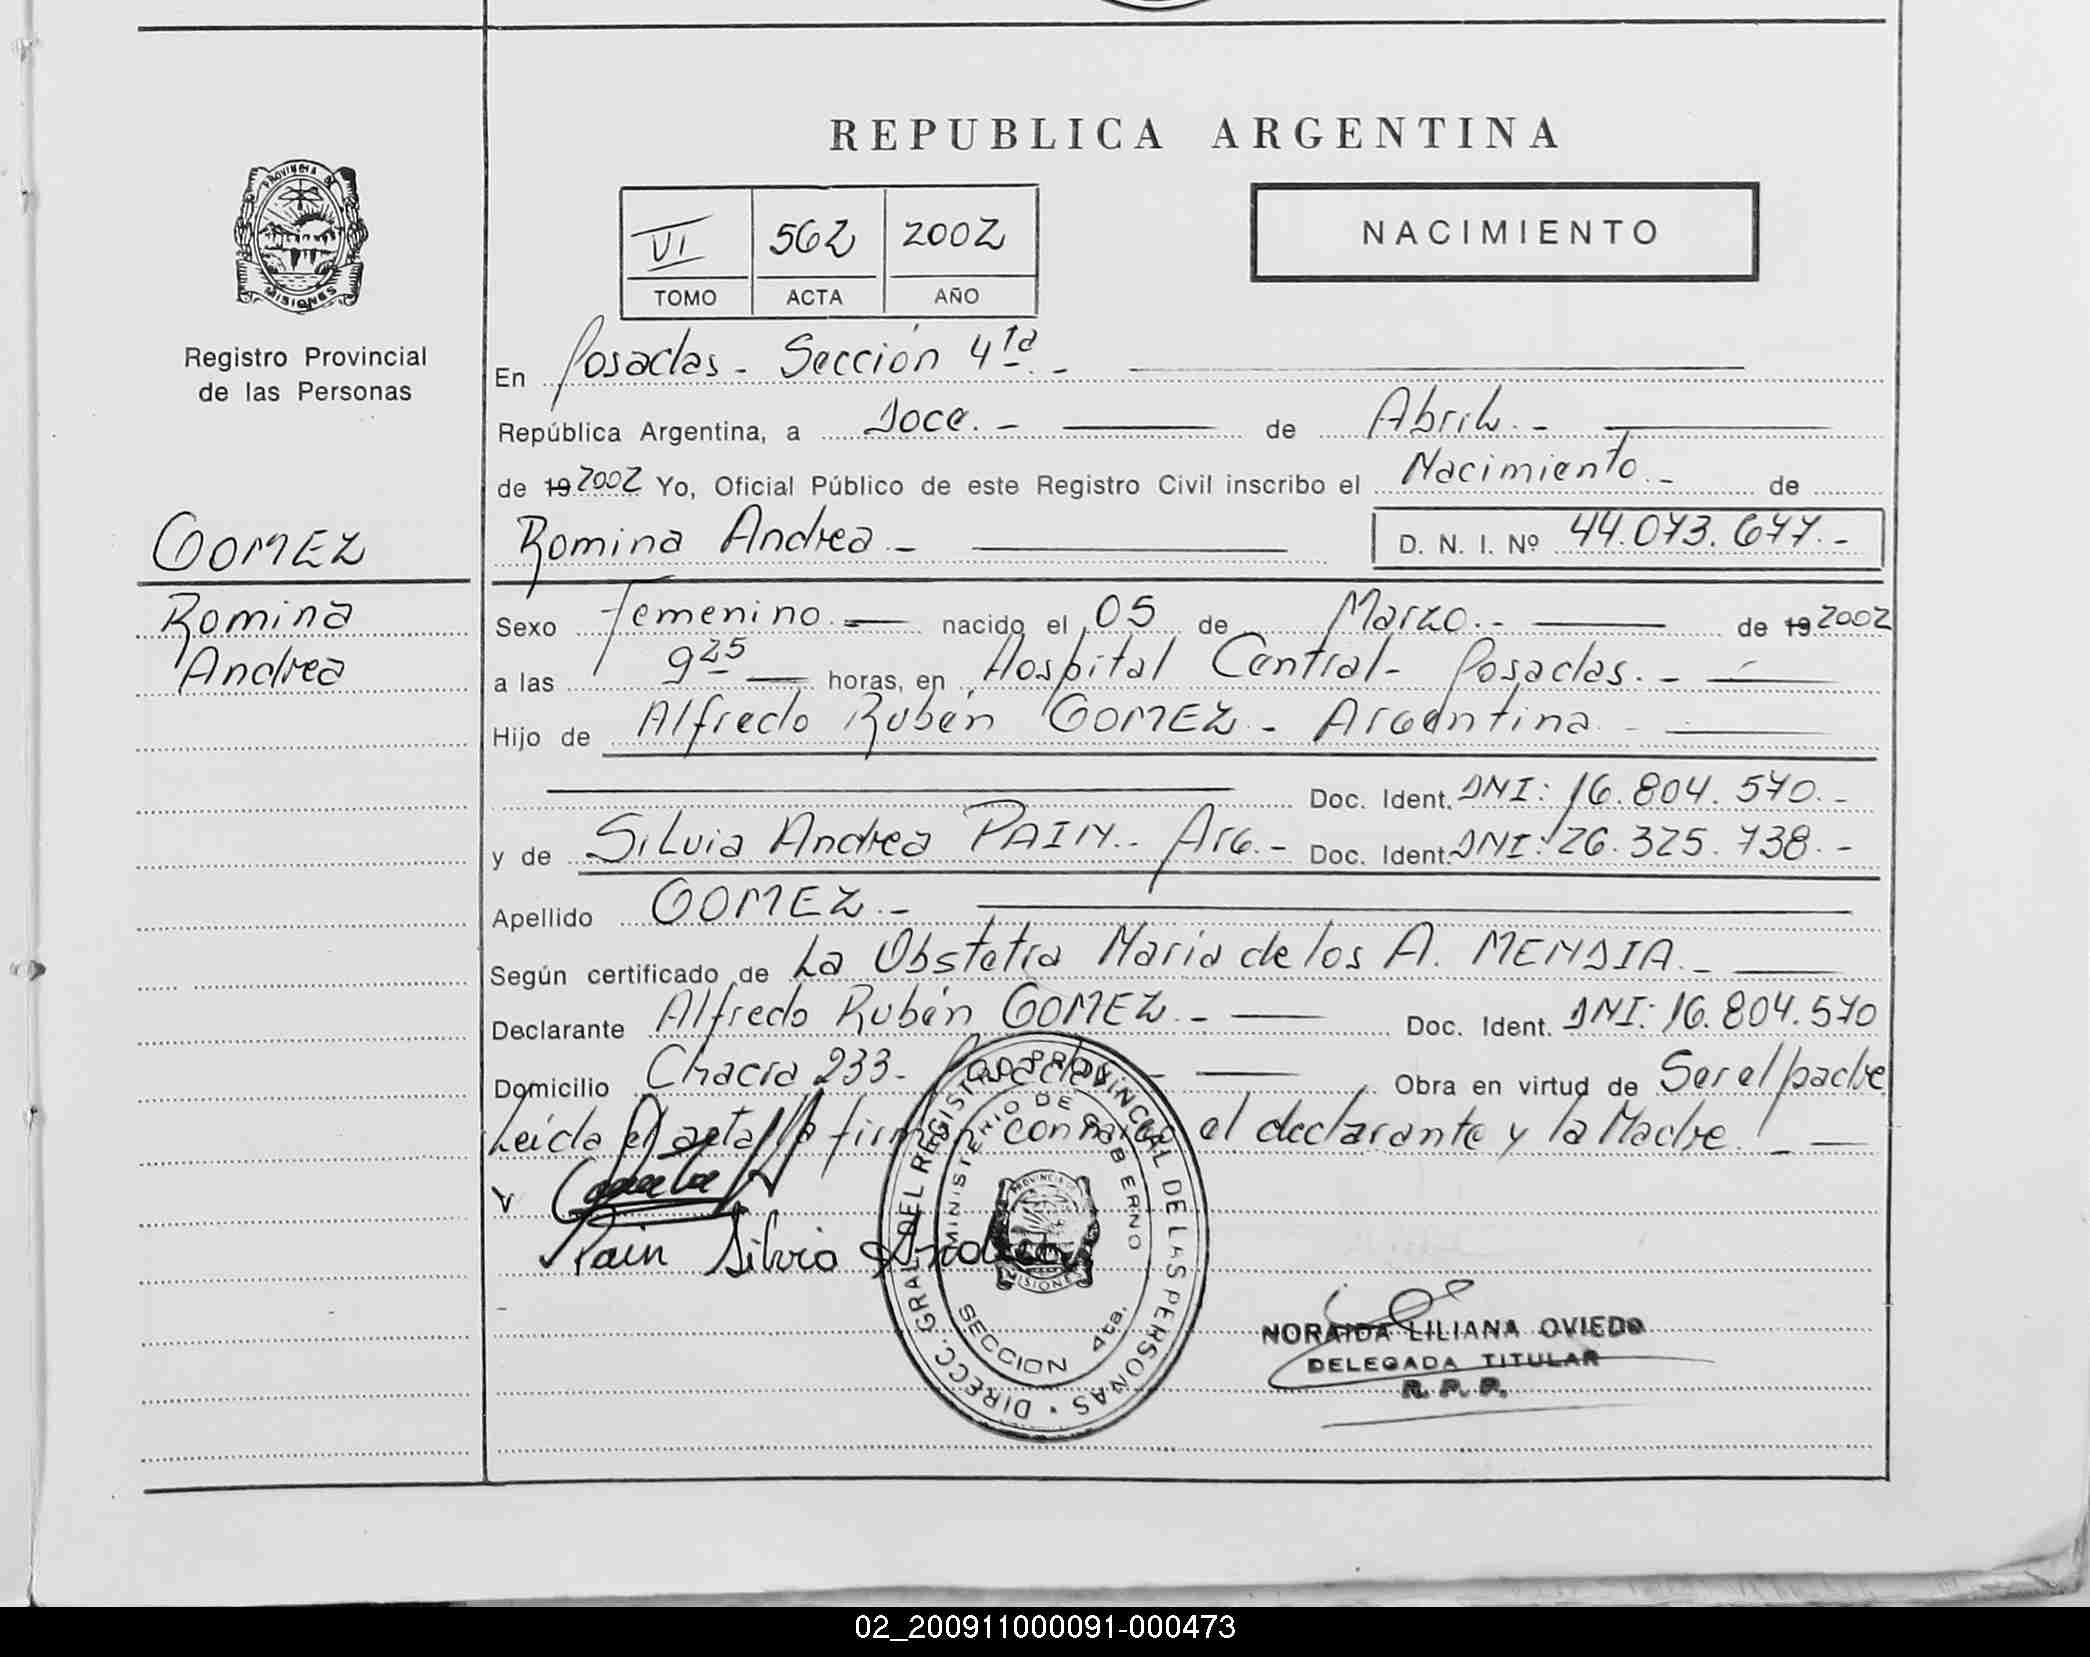 REPUBLICA ARGENTINA
PROVINCIA DE
MISIONES
Registro Provincial
de las Personas
VI 562 2002
TOMO ACTA AÑO
NACIMIENTO
En Posadas - Sección 4ta. -
República Argentina, a Doce. - de Abril. -
de 19 2002 Yo, Oficial Público de este Registro Civil inscribo el Nacimiento. - de
GOMEZ
Romina Andrea. - D. N. I. Nº 44.073.677. -
Romina
Andrea
Sexo Femenino. - nacido el 05 de Marzo. - de 19 2002
a las 9 25 horas, en Hospital Central - Posadas. -
Hijo de Alfredo Rubén GOMEZ - Argentina -
Doc. Ident. DNI: 16.804.570. -
y de Silvia Andrea PAIN. - Arg. - Doc. Ident. DNI: 26.325.738. -
Apellido GOMEZ. -
Según certificado de La Obstetra María de los A. MENDIA. -
Declarante Alfredo Rubén GOMEZ. - Doc. Ident. DNI: 16.804.570
Domicilio Chacra 233 - Posadas - Obra en virtud de Ser el padre
Leída el acta la firman conmigo el declarante y la Madre. -
Pain Silvia Andrea
DIRECC. GRAL. DEL REGISTRO PROVINCIAL DE LAS PERSONAS
MINISTERIO DE GOBIERNO
PROVINCIA DE
MISIONES
SECCION 4ta.
NORAIDA LILIANA OVIEDO
DELEGADA TITULAR
R. P. P.
02_200911000091-000473